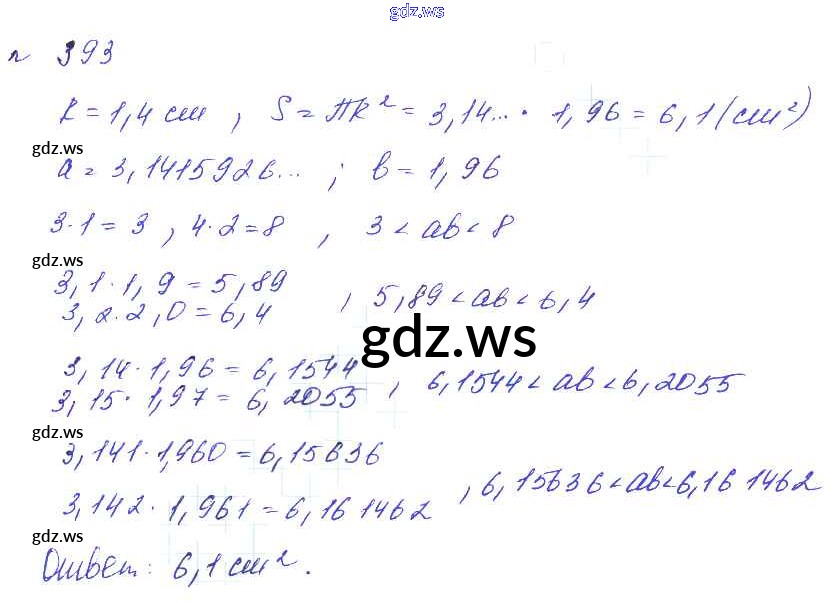 gdz.ws
n 393
R = 1,4 см , S = πR² = 3,14... · 1,96 = 6,1 (см²)
gdz.ws
a = 3,1415926... ; b = 1,96
3·1 = 3 , 4·2 = 8 , 3 < ab < 8
gdz.ws
3,1 · 1,9 = 5,89
3,2 · 2,0 = 6,4 , 5,89 < ab < 6,4
gdz.ws
3,14 · 1,96 = 6,1544
3,15 · 1,97 = 6,2055 , 6,1544 < ab < 6,2055
gdz.ws
3,141 · 1,960 = 6,15636
3,142 · 1,961 = 6,161462 , 6,15636 < ab < 6,161462
gdz.ws
Ответ: 6,1 см².